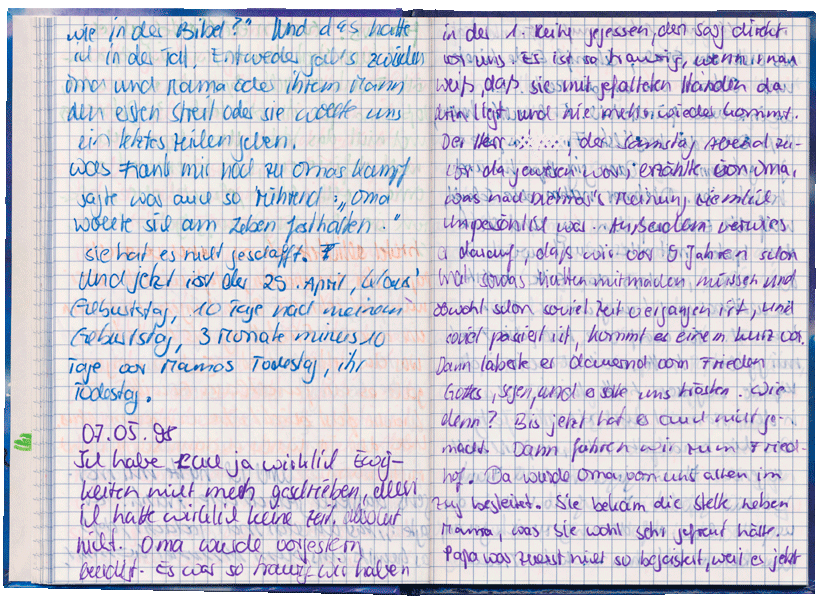 wie in der Bibel?" Und das hatte
ich in der Tat. Entweder gab's zwischen
Oma und Mama oder ihrem Mann
den ersten Streit oder sie wollte uns
ein letztes Zeichen geben.
Was Frank mir noch zu Omas Kampf
sagte war auch so rührend: „Oma
wollte sich am Leben festhalten."
sie hat es nicht geschafft.
Und jetzt ist der 25. April, Claus'
Geburtstag, 10 Tage nach meinem
Geburtstag, 3 Monate minus 10
Tage vor Mamas Todestag, ihr
Todestag.
07.05.98
Ich habe Euch ja wirklich Ewig-
keiten nicht mehr geschrieben, denn
ich hatte wirklich keine Zeit. Absolut
nicht. Oma wurde vorgestern
beerdigt. Es war so traurig, wir haben
in der 1. Reihe gesessen, den Sarg direkt
vor uns. Es ist so traurig, wenn man
weiß, daß sie mit gefalteten Händen da
drin liegt und nie mehr wieder kommt.
Der Herr , der Samstag abend zu-
vor da gewesen war, erzählte von Oma,
was nach Meinung ziemlich
unpersönlich war. Außerdem verwies
er darauf, daß wir vor 5 Jahren schon
mal sowas hatten mitmachen müssen und
obwohl schon soviel Zeit vergangen ist, und
soviel passiert ist, kommt es einem kurz vor.
Dann laberte er dauernd vom Frieden
Gottes, Segen, und er solle uns trösten. Wie
denn? Bis jetzt hat er auch nicht ge-
macht. Dann fuhren wir zum Fried-
hof. Da wurde Oma von uns allen im
Zug begleitet. Sie bekam die Stelle neben
Mama, was sie wohl sehr gefreut hätte.
Papa war zuerst nicht so begeistert, weil es jetzt